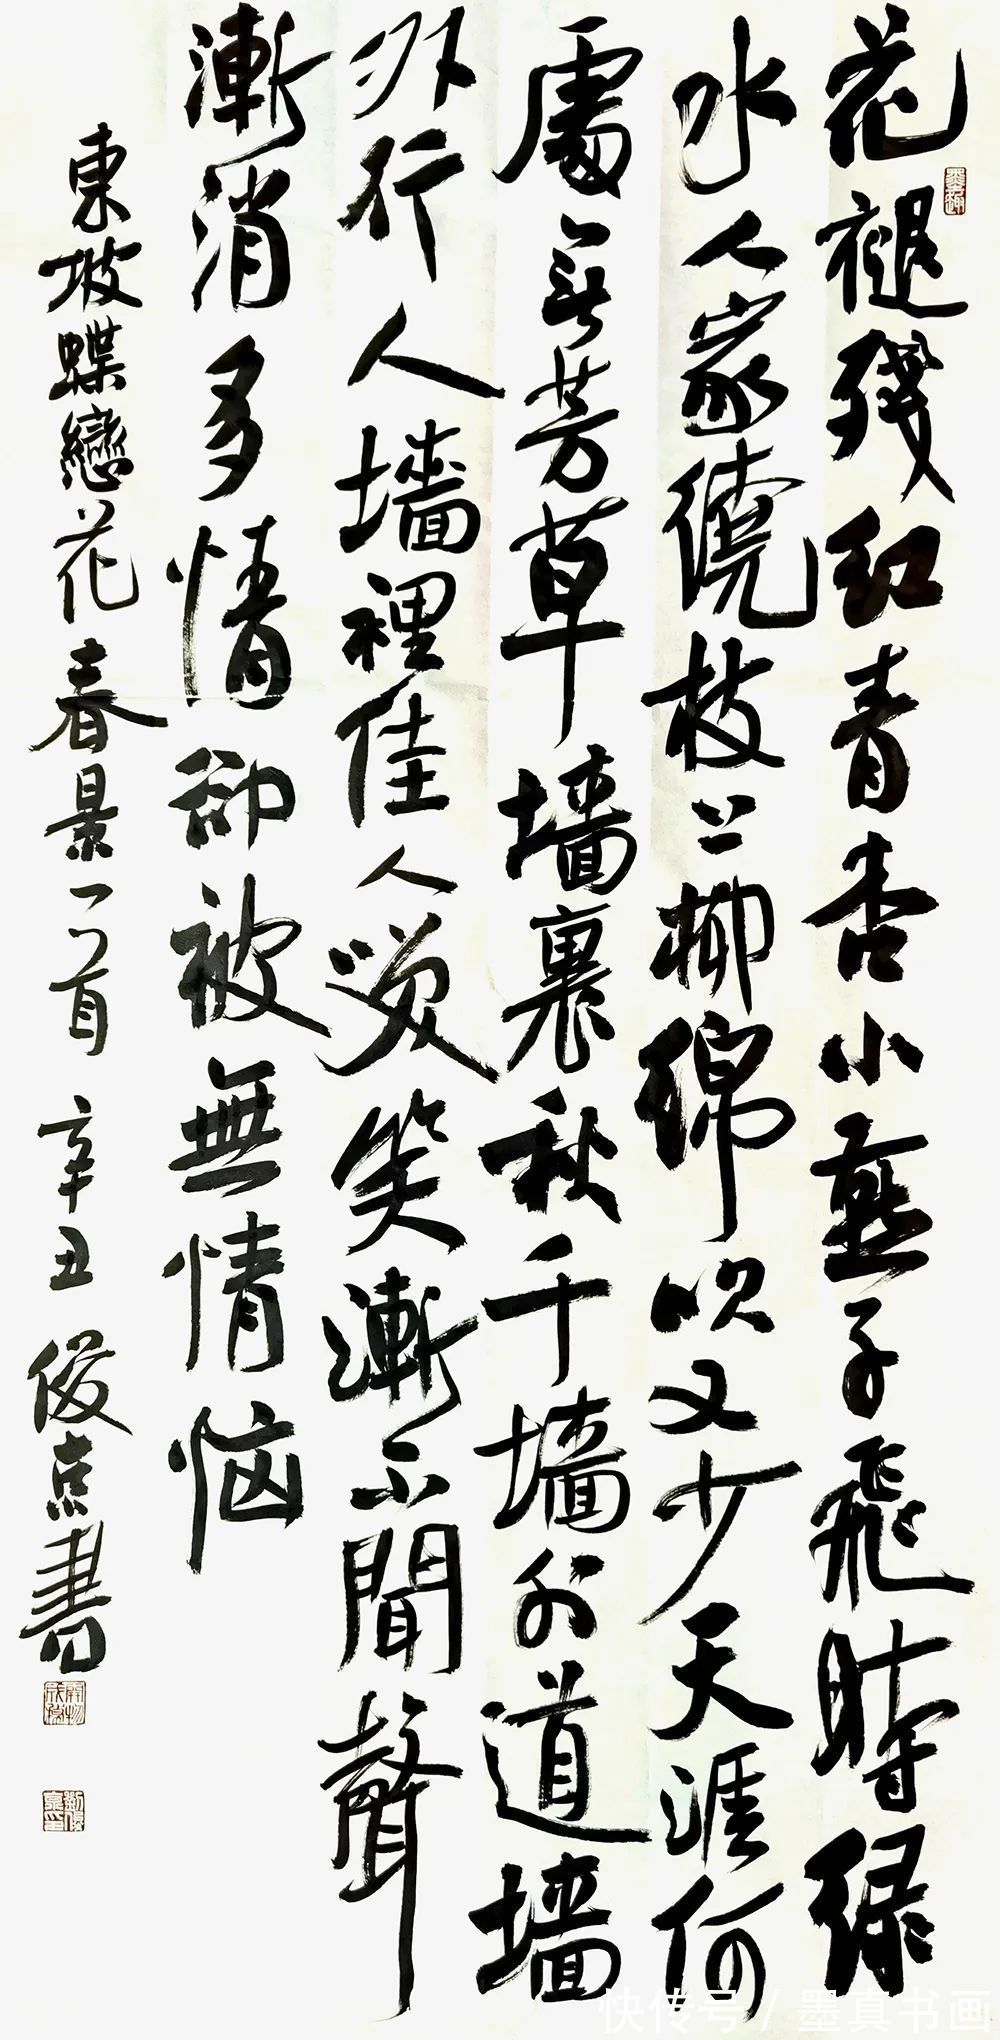 花褪殘红青杏小燕子飛時緑
水人家繞枝上柳綿吹又少天涯何
處無芳草墙裏秋千墙外道墙
外行人墙裡佳人笑笑漸不聞聲
漸消多情卻被無情恼
東坡蝶戀花春景一首 辛丑 俊京書
快传号 / 墨真书画